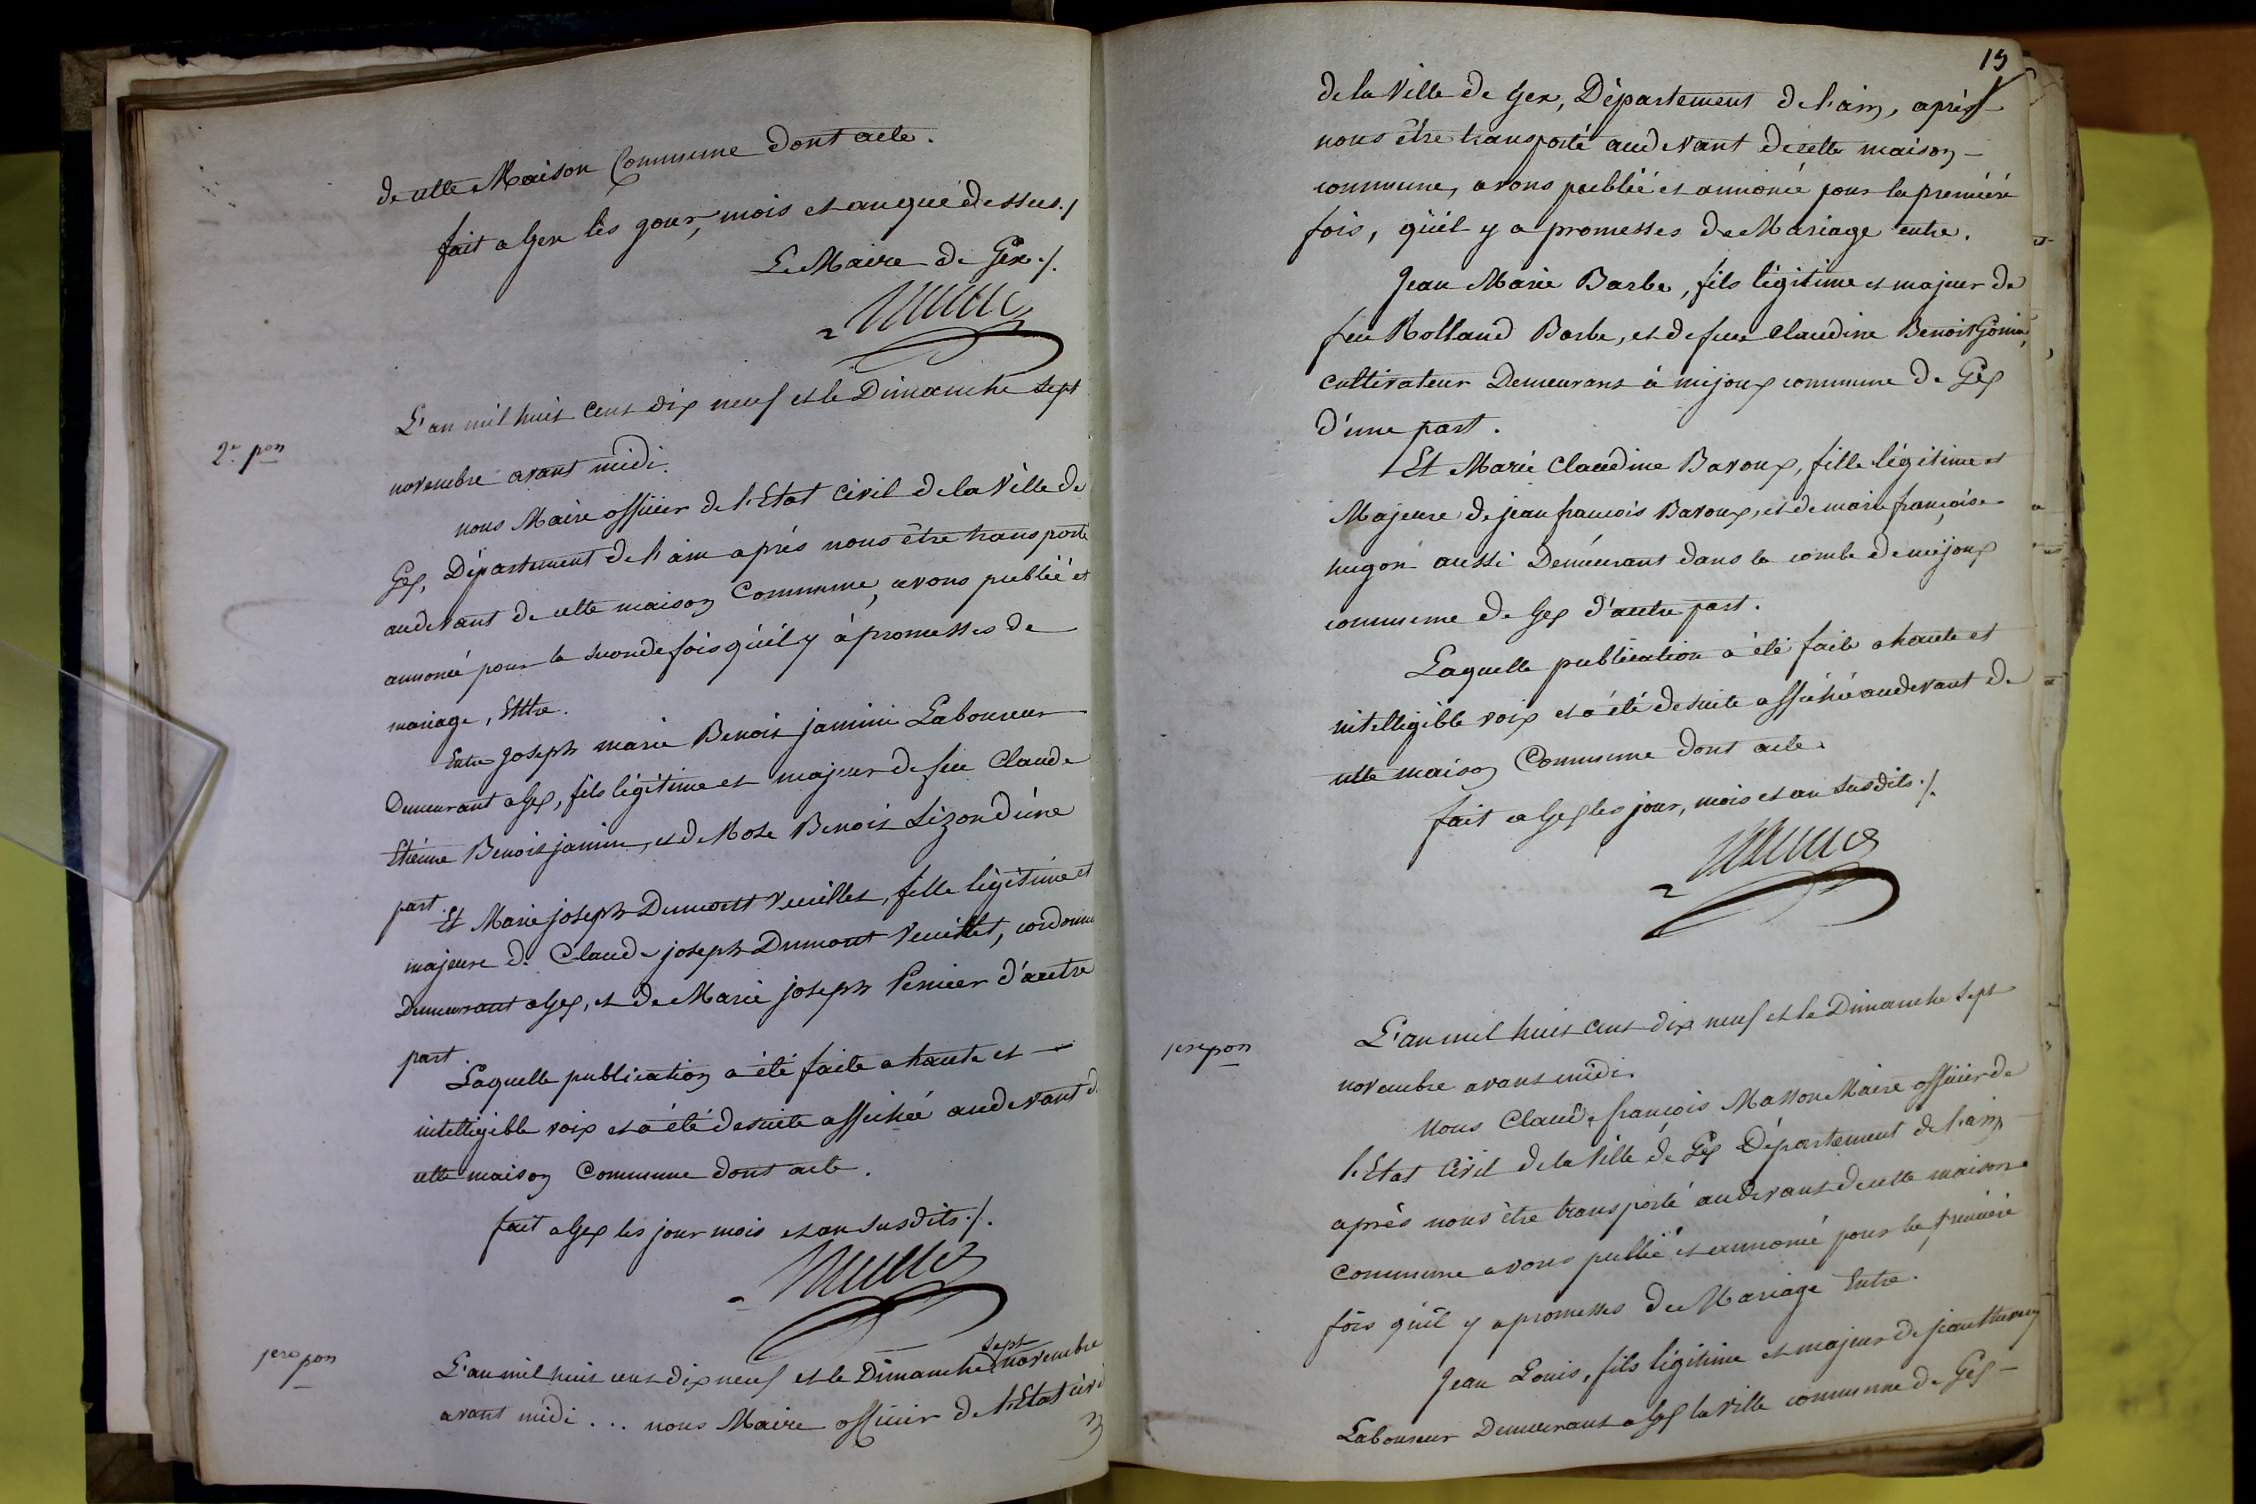 de cette Maison Commune dont acte.
fait a Gex les jour, mois et an que dessus ./
Le Maire de Gex ./.
2e. pon
L'an mil huit cent dix neuf et le Dimanche sept
novembre avant midi.
nous Maire officier de l'Etat Civil de la Ville de
Gex, Département de l'ain après nous être transporté
audevant de cette maison Commune, avons publié et
annoncé pour la seconde fois qu'il y à promesses de
mariage, Entre.
Entre Joseph marie Benoit jannin Laboureur
Demeurant a Gex, fils légitime et majeur de feu Claude
Etienne Benoit jannin, et de Rose Benoit Lizon d'une
part.
Et Marie joseph Dumont Veuillet, fille légitime et
majeure de Claude joseph Dumont Veuillet, cordonnier
Demeurant a Gex, et de Marie joseph Penier d'autre
part.
Laquelle publication a été faite a haute et —
intelligible voix et a été de suite affichée audevant de
cette maison Commune dont acte.
fait a Gex les jour mois et an susdits ./.
1ere pon
L'an mil huit cent dix neuf et le Dimanche sept novembre
avant midi ... nous Maire officier de l'Etat civil
19
de la Ville de Gex, Département de l'ain, après
nous être transporté audevant de cette maison —
commune, avons publié et annoncé pour la première
fois, qu'il y a promesses de Mariage entre.
Jean Marie Barbe, fils légitime et majeur de
feu Rolland Barbe, et de feue Claudine Benoit Gonin,
cultivateur Demeurant à mijoux commune de Gex
d'une part.
Et Marie Claudine Baroux, fille légitime et
Majeure de jean francois Baroux, et de marie françoise
hugon aussi Demeurant dans la combe de mijoux
commune de Gex d'autre part.
Laquelle publication a été faite a haute et
intelligible voix et a été de suite affichée audevant de
cette maison Commune dont acte.
fait a Gex les jour, mois et an susdits ./.
1ere pon
L'an mil huit cent dix neuf et le Dimanche sept
novembre avant midi.
Nous Claude françois Masson Maire officier de
l'Etat Civil de la Ville de Gex Département de l'ain
après nous être transporté audevant de cette maison
Commune avons publié et annoncé pour la première
fois qu'il y a promesses de Mariage Entre.
Jean Louis, fils légitime et majeur de jean
Laboureur Demeurant a Gex la Ville commune de Gex —